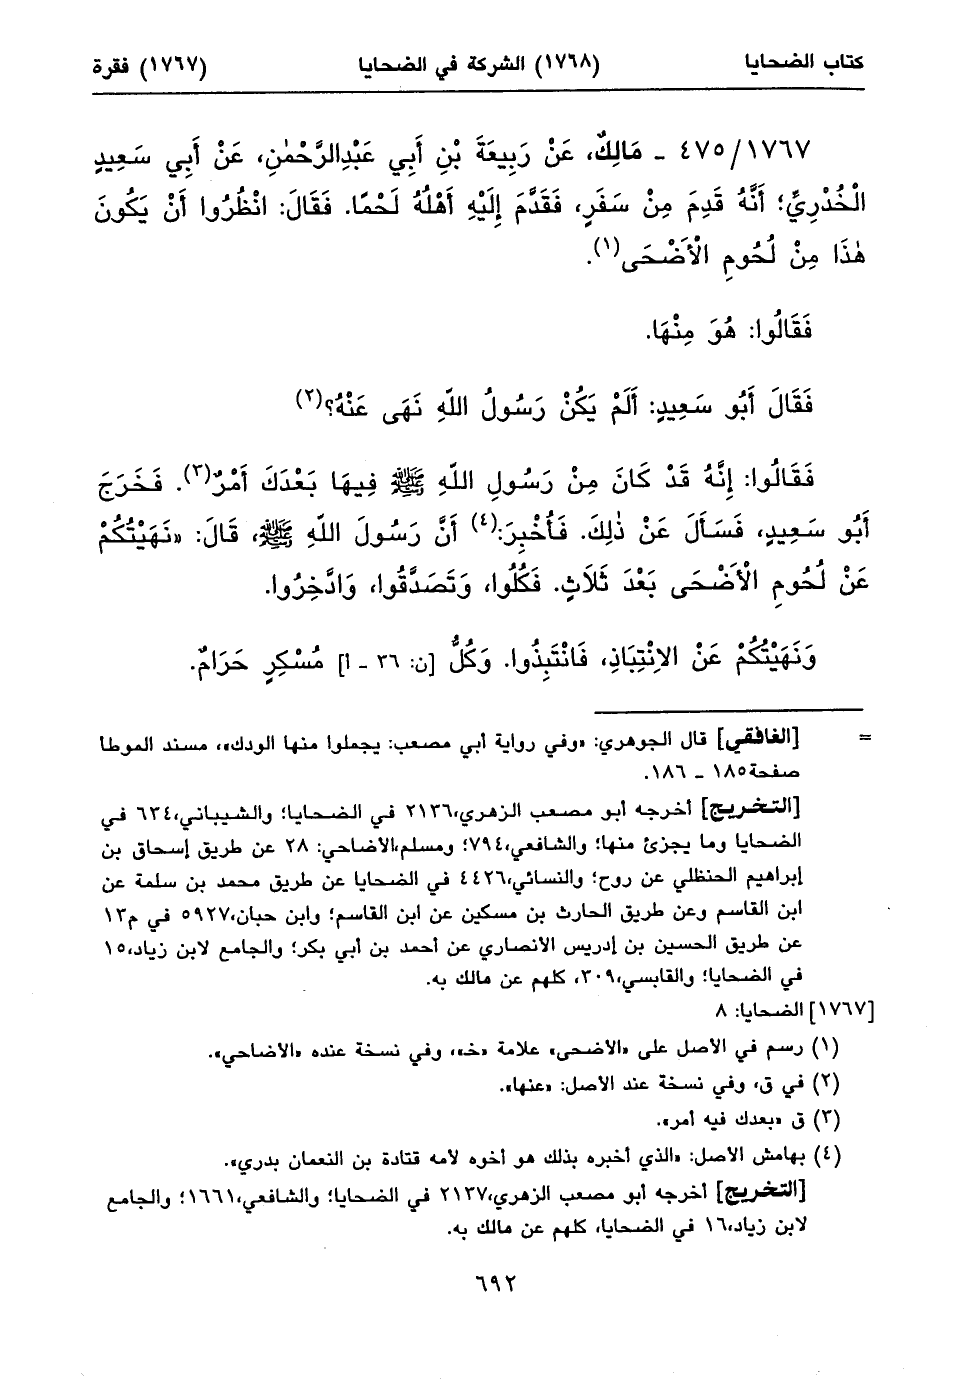 كتاب الضحايا (١٧٦٨) الشركة في الضحايا (١٧٦٧) فقرة
٤٧٥/١٧٦٧ - مَالِكٌ، عَنْ رَبِيعَةَ بْنِ أَبِي عَبْدِالرَّحْمٰنِ، عَنْ أَبِي سَعِيدٍ
الْخُدْرِيِّ؛ أَنَّهُ قَدِمَ مِنْ سَفَرٍ، فَقَدَّمَ إِلَيْهِ أَهْلُهُ لَحْمًا. فَقَالَ: انْظُرُوا أَنْ يَكُونَ
هٰذَا مِنْ لُحُومِ الْأَضْحَى(١).
فَقَالُوا: هُوَ مِنْهَا.
فَقَالَ أَبُو سَعِيدٍ: أَلَمْ يَكُنْ رَسُولُ اللَّهِ نَهَى عَنْهُ؟(٢)
فَقَالُوا: إِنَّهُ قَدْ كَانَ مِنْ رَسُولِ اللَّهِ ﷺ فِيهَا بَعْدَكَ أَمْرٌ(٣). فَخَرَجَ
أَبُو سَعِيدٍ، فَسَأَلَ عَنْ ذٰلِكَ. فَأُخْبِرَ:(٤) أَنَّ رَسُولَ اللَّهِ ﷺ، قَالَ: «نَهَيْتُكُمْ
عَنْ لُحُومِ الْأَضْحَى بَعْدَ ثَلَاثٍ. فَكُلُوا، وَتَصَدَّقُوا، وَادَّخِرُوا.
وَنَهَيْتُكُمْ عَنْ الِانْتِبَاذِ، فَانْتَبِذُوا. وَكُلُّ [ن: ٣٦ - أ] مُسْكِرٍ حَرَامٌ.
= [الغافقي] قال الجوهري: «وفي رواية أبي مصعب: يجملوا منها الودك»، مسند الموطا
صفحة١٨٥ - ١٨٦.
[التخريج] أخرجه أبو مصعب الزهري،٢١٣٦ في الضحايا؛ والشيباني،٦٣٤ في
الضحايا وما يجزئ منها؛ والشافعي،٧٩٤؛ ومسلم،الاضاحي: ٢٨ عن طريق إسحاق بن
إبراهيم الحنظلي عن روح؛ والنسائي،٤٤٢٦ في الضحايا عن طريق محمد بن سلمة عن
ابن القاسم وعن طريق الحارث بن مسكين عن ابن القاسم؛ وابن حبان،٥٩٢٧ في م١٣
عن طريق الحسين بن إدريس الانصاري عن أحمد بن أبي بكر؛ والجامع لابن زياد،١٥
في الضحايا؛ والقابسي،٣٠٩، كلهم عن مالك به.
[١٧٦٧] الضحايا: ٨
(١) رسم في الاصل على «الاضحى» علامة «خـ»، وفي نسخة عنده «الاضاحي».
(٢) في ق، وفي نسخة عند الاصل: «عنها».
(٣) ق «بعدك فيه أمر».
(٤) بهامش الاصل: «الذي أخبره بذلك هو أخوه لامه قتادة بن النعمان بدري».
[التخريج] أخرجه أبو مصعب الزهري،٢١٣٧ في الضحايا؛ والشافعي،١٦٦١؛ والجامع
لابن زياد،١٦ في الضحايا، كلهم عن مالك به.
٦٩٢